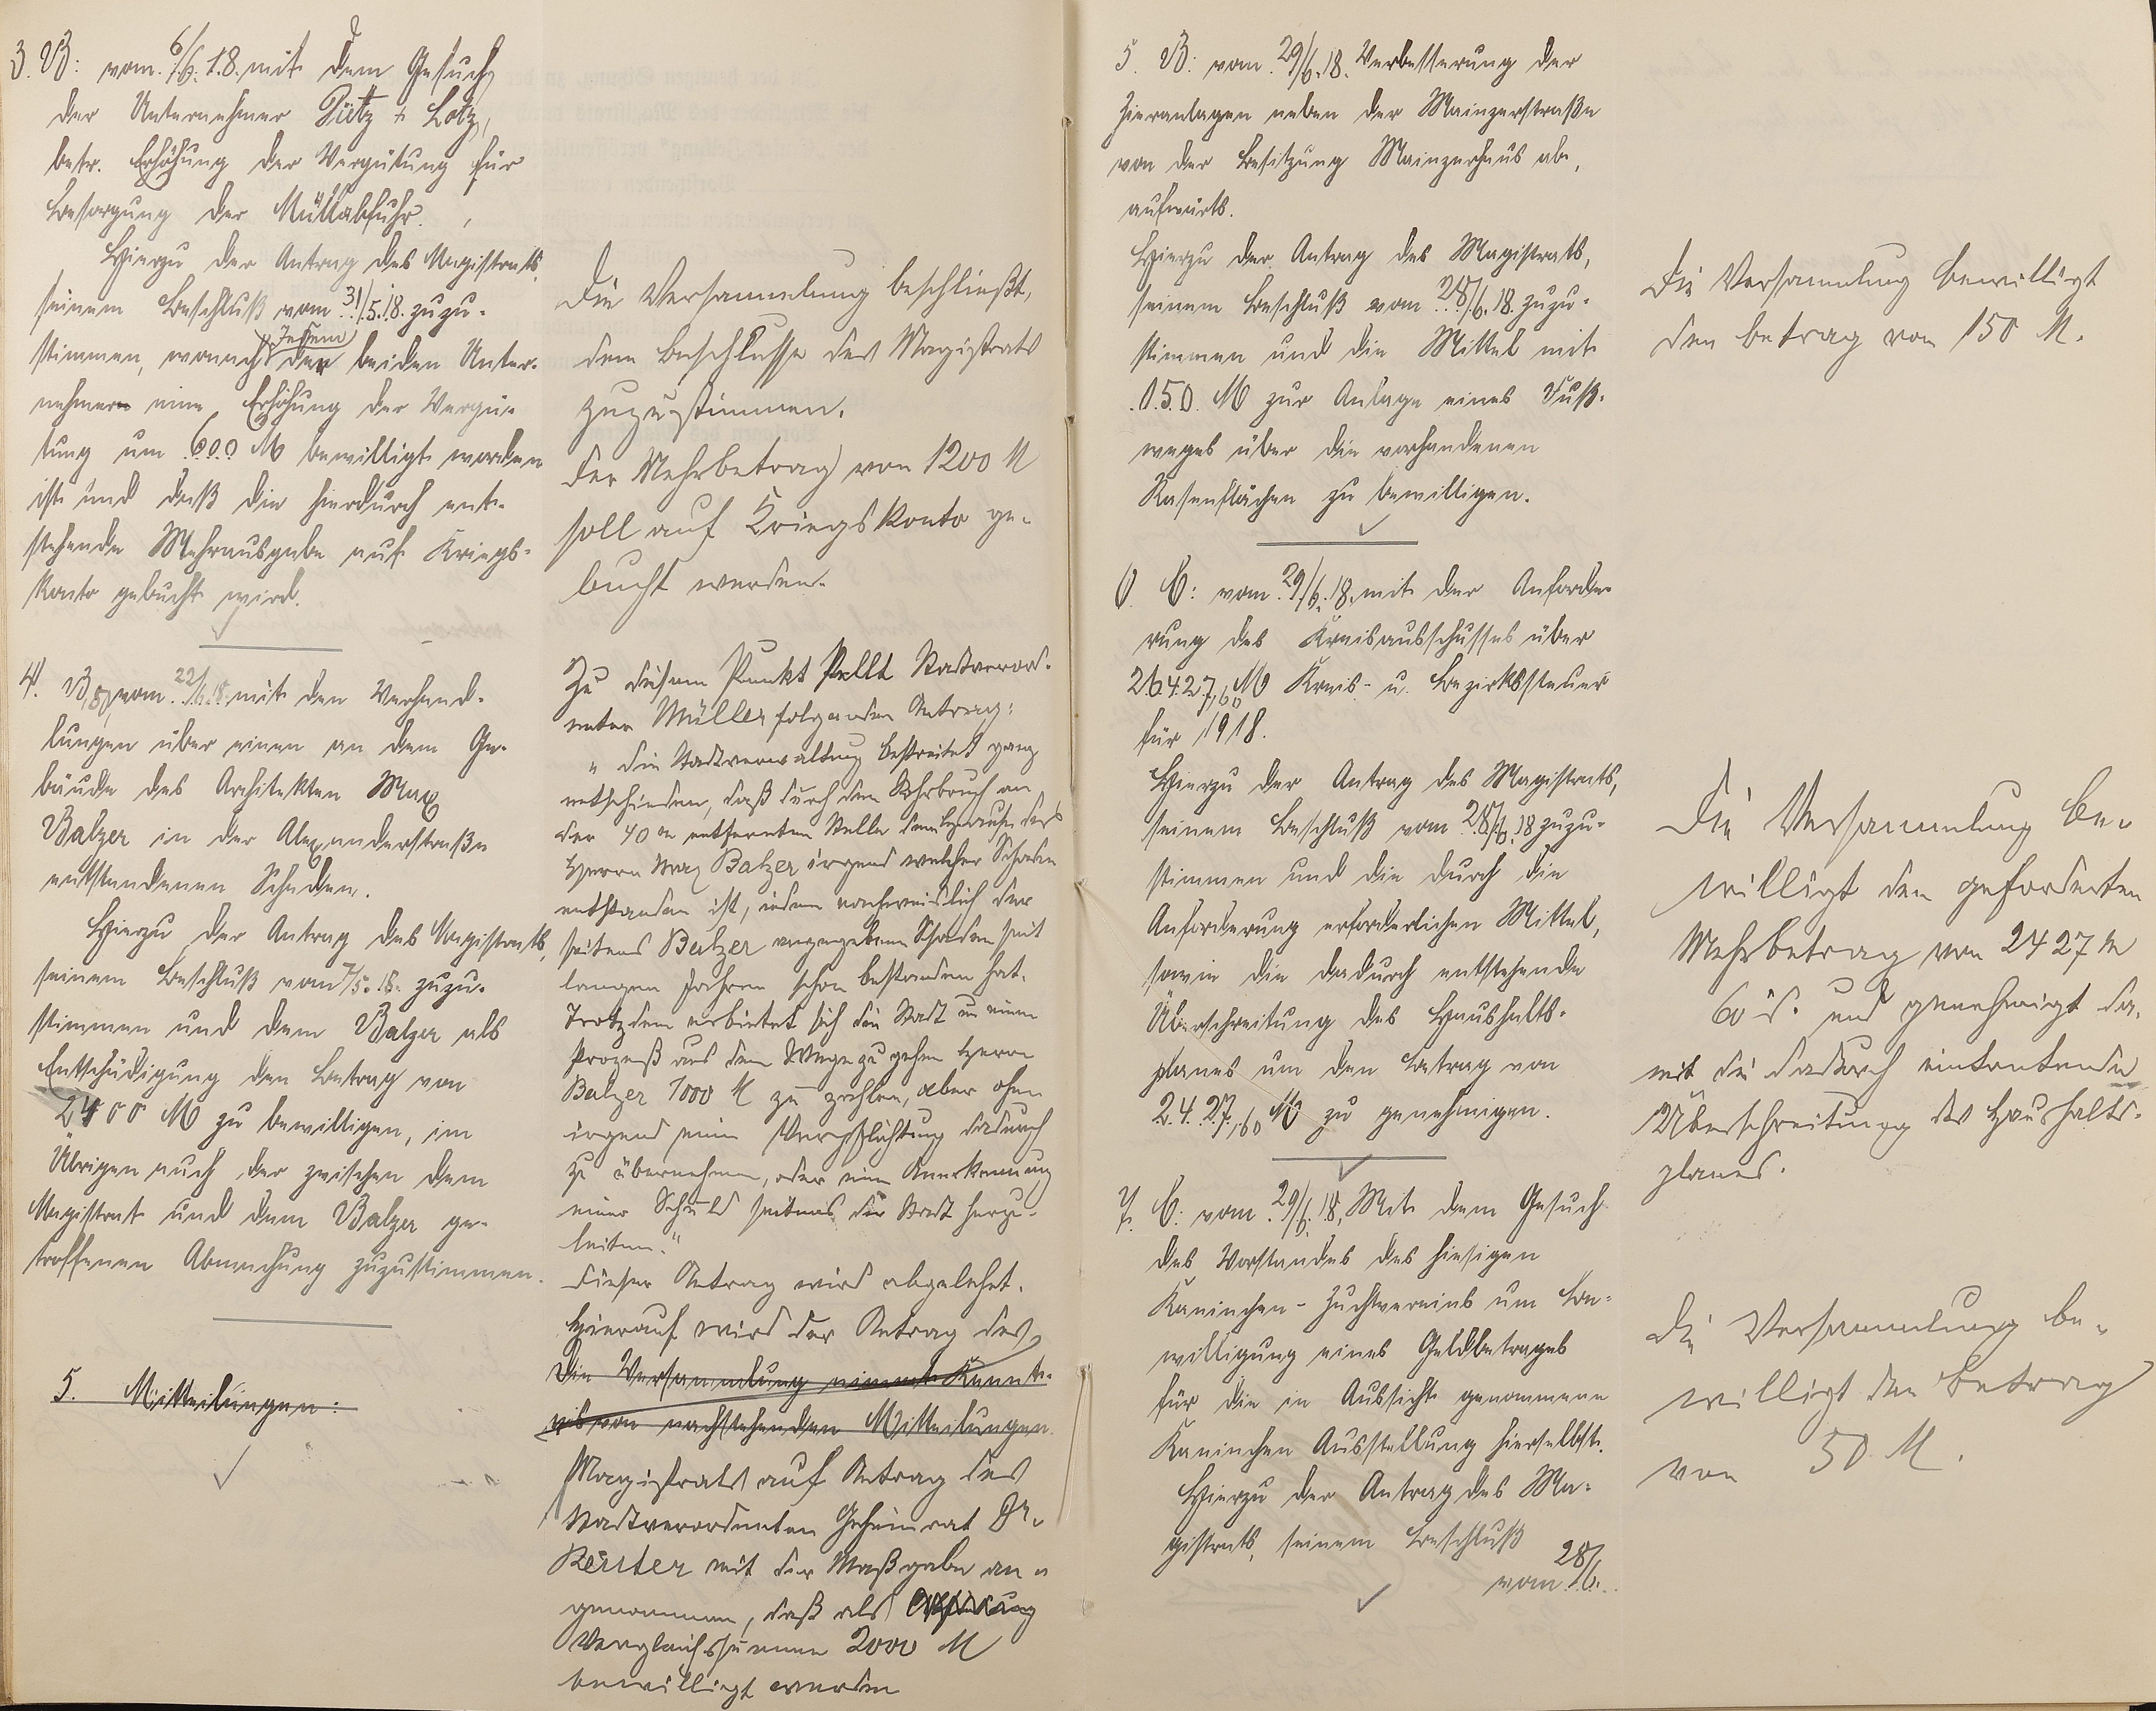 3. B: vom 6/6. 18. mit dem Gesuch
der Unternehmer Pütz & Lotz,
betr. Erhöhung der Vergütung für
Besorgung der Müllabfuhr.
Hierzu der Antrag des Magistrats,
seinem Beschluß vom 31/5. 18. zuzu-
stimmen, wonach jedem der beiden Unter-
nehmer eine Erhöhung der Vergü-
tung um 600 M bewilligt worden
ist und daß die hierdurch ent-
stehende Mehrausgabe auf Kriegs-
konto gebucht wird.
4. B, vom 22/6. 18. mit den Verhand-
lungen über einen an dem Ge-
bäude des Architekten Max
Balzer in der Alexanderstraße
entstandenen Schaden.
Hierzu der Antrag des Magistrats,
seinem Beschluß vom 7/5. 18. zuzu-
stimmen und dem Balzer als
Entschädigung den Betrag von
2400 M zu bewilligen, im
Übrigen auch der zwischen dem
Magistrat und dem Balzer ge-
troffenen Abmachung zuzustimmen.
5. Mitteilungen:
Die Versammlung beschließt,
dem Beschlusse des Magistrats
zuzustimmen.
Der Mehrbetrag von 1200 M
soll auf Kriegskonto ge-
bucht werden.
Zu diesem Punkt stellt Stadtverord-
neter Müller folgenden Antrag:
"Die Stadtverwaltung bestreitet ganz
entschieden, daß durch den Rohrbruch an
der 40 m entfernten Stelle dem Hause des
Herrn Max Balzer irgend welcher Schaden
entstanden ist, indem nachweislich der
seitens Balzer angegebene Schaden seit
langen Jahren schon bestanden hat.
Trotzdem erbietet sich die Stadt um einem
Prozeß aus dem Wege zu gehen Herrn
Balzer 1000 M zu zahlen, aber ohne
irgend eine Verpflichtung dadurch
zu übernehmen, oder eine Anerkennung
einer Schuld seitens der Stadt herzu-
leiten."
Dieser Antrag wird abgelehnt.
Hierauf wird der Antrag des
Die Versammlung nimmt Kennt-
nis von nachstehenden Mitteilungen.
Magistrats auf Antrag des
Stadtverordneten Geheimrat Dr.
Reuter mit der Maßgabe an-
genommen, daß als
Vergleichssumme 2000 M
bewilligt werden
5. B: vom 29/6. 18. Verbesserung der
Zieranlagen neben der Mainzerstraße
von der Besitzung Mainzerhaus ab,
aufwärts.
Hierzu der Antrag des Magistrats,
seinem Beschluß vom 28/6. 18. zuzu-
stimmen und die Mittel mit
150 M zur Anlage eines Fuß-
weges über die vorhandenen
Rasenflächen zu bewilligen.
6. C: vom 29/6. 18. mit der Anforde-
rung des Kreisausschusses über
26427,60 M Kreis- u. Bezirkssteuer
für 1918.
Hierzu der Antrag des Magistrats,
seinem Beschluß vom 28/6. 18 zuzu-
stimmen und die durch die
Anforderung erforderlichen Mittel,
sowie die dadurch entstehende
Überschreitung des Haushalts-
planes um den Betrag von
2427,60 M zu genehmigen.
7. C: vom 29/6. 18, Mit dem Gesuch
des Vorstandes des hiesigen
Kaninchen-Zuchtvereins um Be-
willigung eines Geldbetrages
für die in Aussicht genommene
Kaninchen Ausstellung hierselbst.
Hierzu der Antrag des Ma-
gistrats, seinem Beschluß
vom 28/6.
Die Versammlung bewilligt
den Betrag von 150 M.
Die Versammlung be-
willigt den geforderten
Mehrbetrag von 2427 M
60 d. und genehmigt da-
mit die dadurch eintretende
Überschreitung des Haushalts-
planes.
Die Versammlung be-
willigt den Betrag
von 50 M.